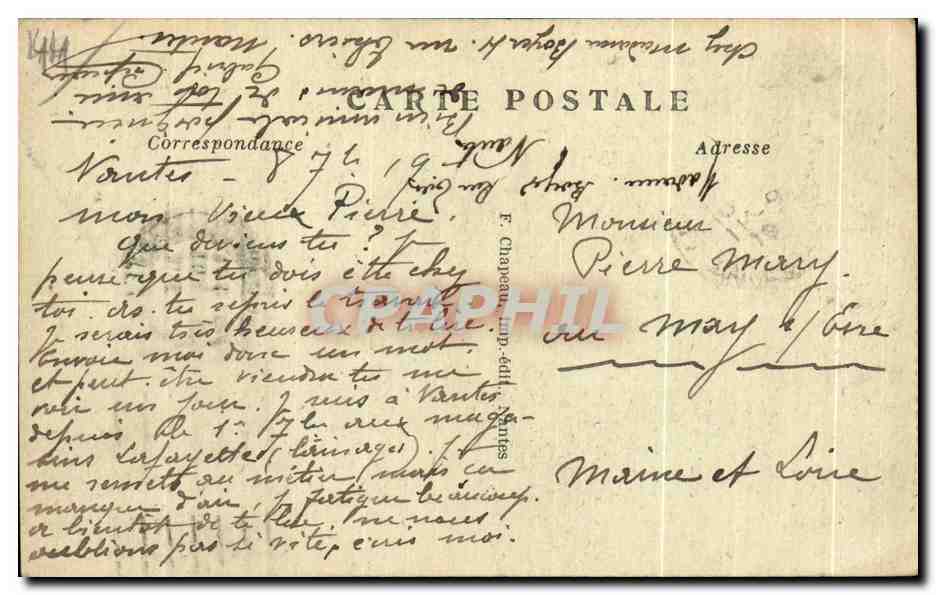 CARTE POSTALE
Correspondance
Adresse
Nantes - 8 7bre
mon Vieux Pierre.
Que deviens tu ? Je
pense que tu dois être chez
toi. As. tu repris le travail
Je serais très heureux de te lire.
Envoie moi donc un mot.
et peut. être viendra tu me
voir un jour. Je suis à Nantes
depuis le 1er 7bre aux maga-
sins Lafayette (lainages). Je
me remets au métier, mais ca
manque d'air, Je fatigue beaucoup.
a bientôt de te lire. ne nous
oublions pas si vite, écris moi.
Bien amicale poignée
de mains de ton ami
Gabriel
Chez Madame Boyer rue Thiers. Nantes
Madame Boyer Rue Thiers
Nantes
F. Chapeau, imp.-édit., Nantes
Monsieur
Pierre Mary.
au May s/Evre
Maine et Loire
CPAPHIL